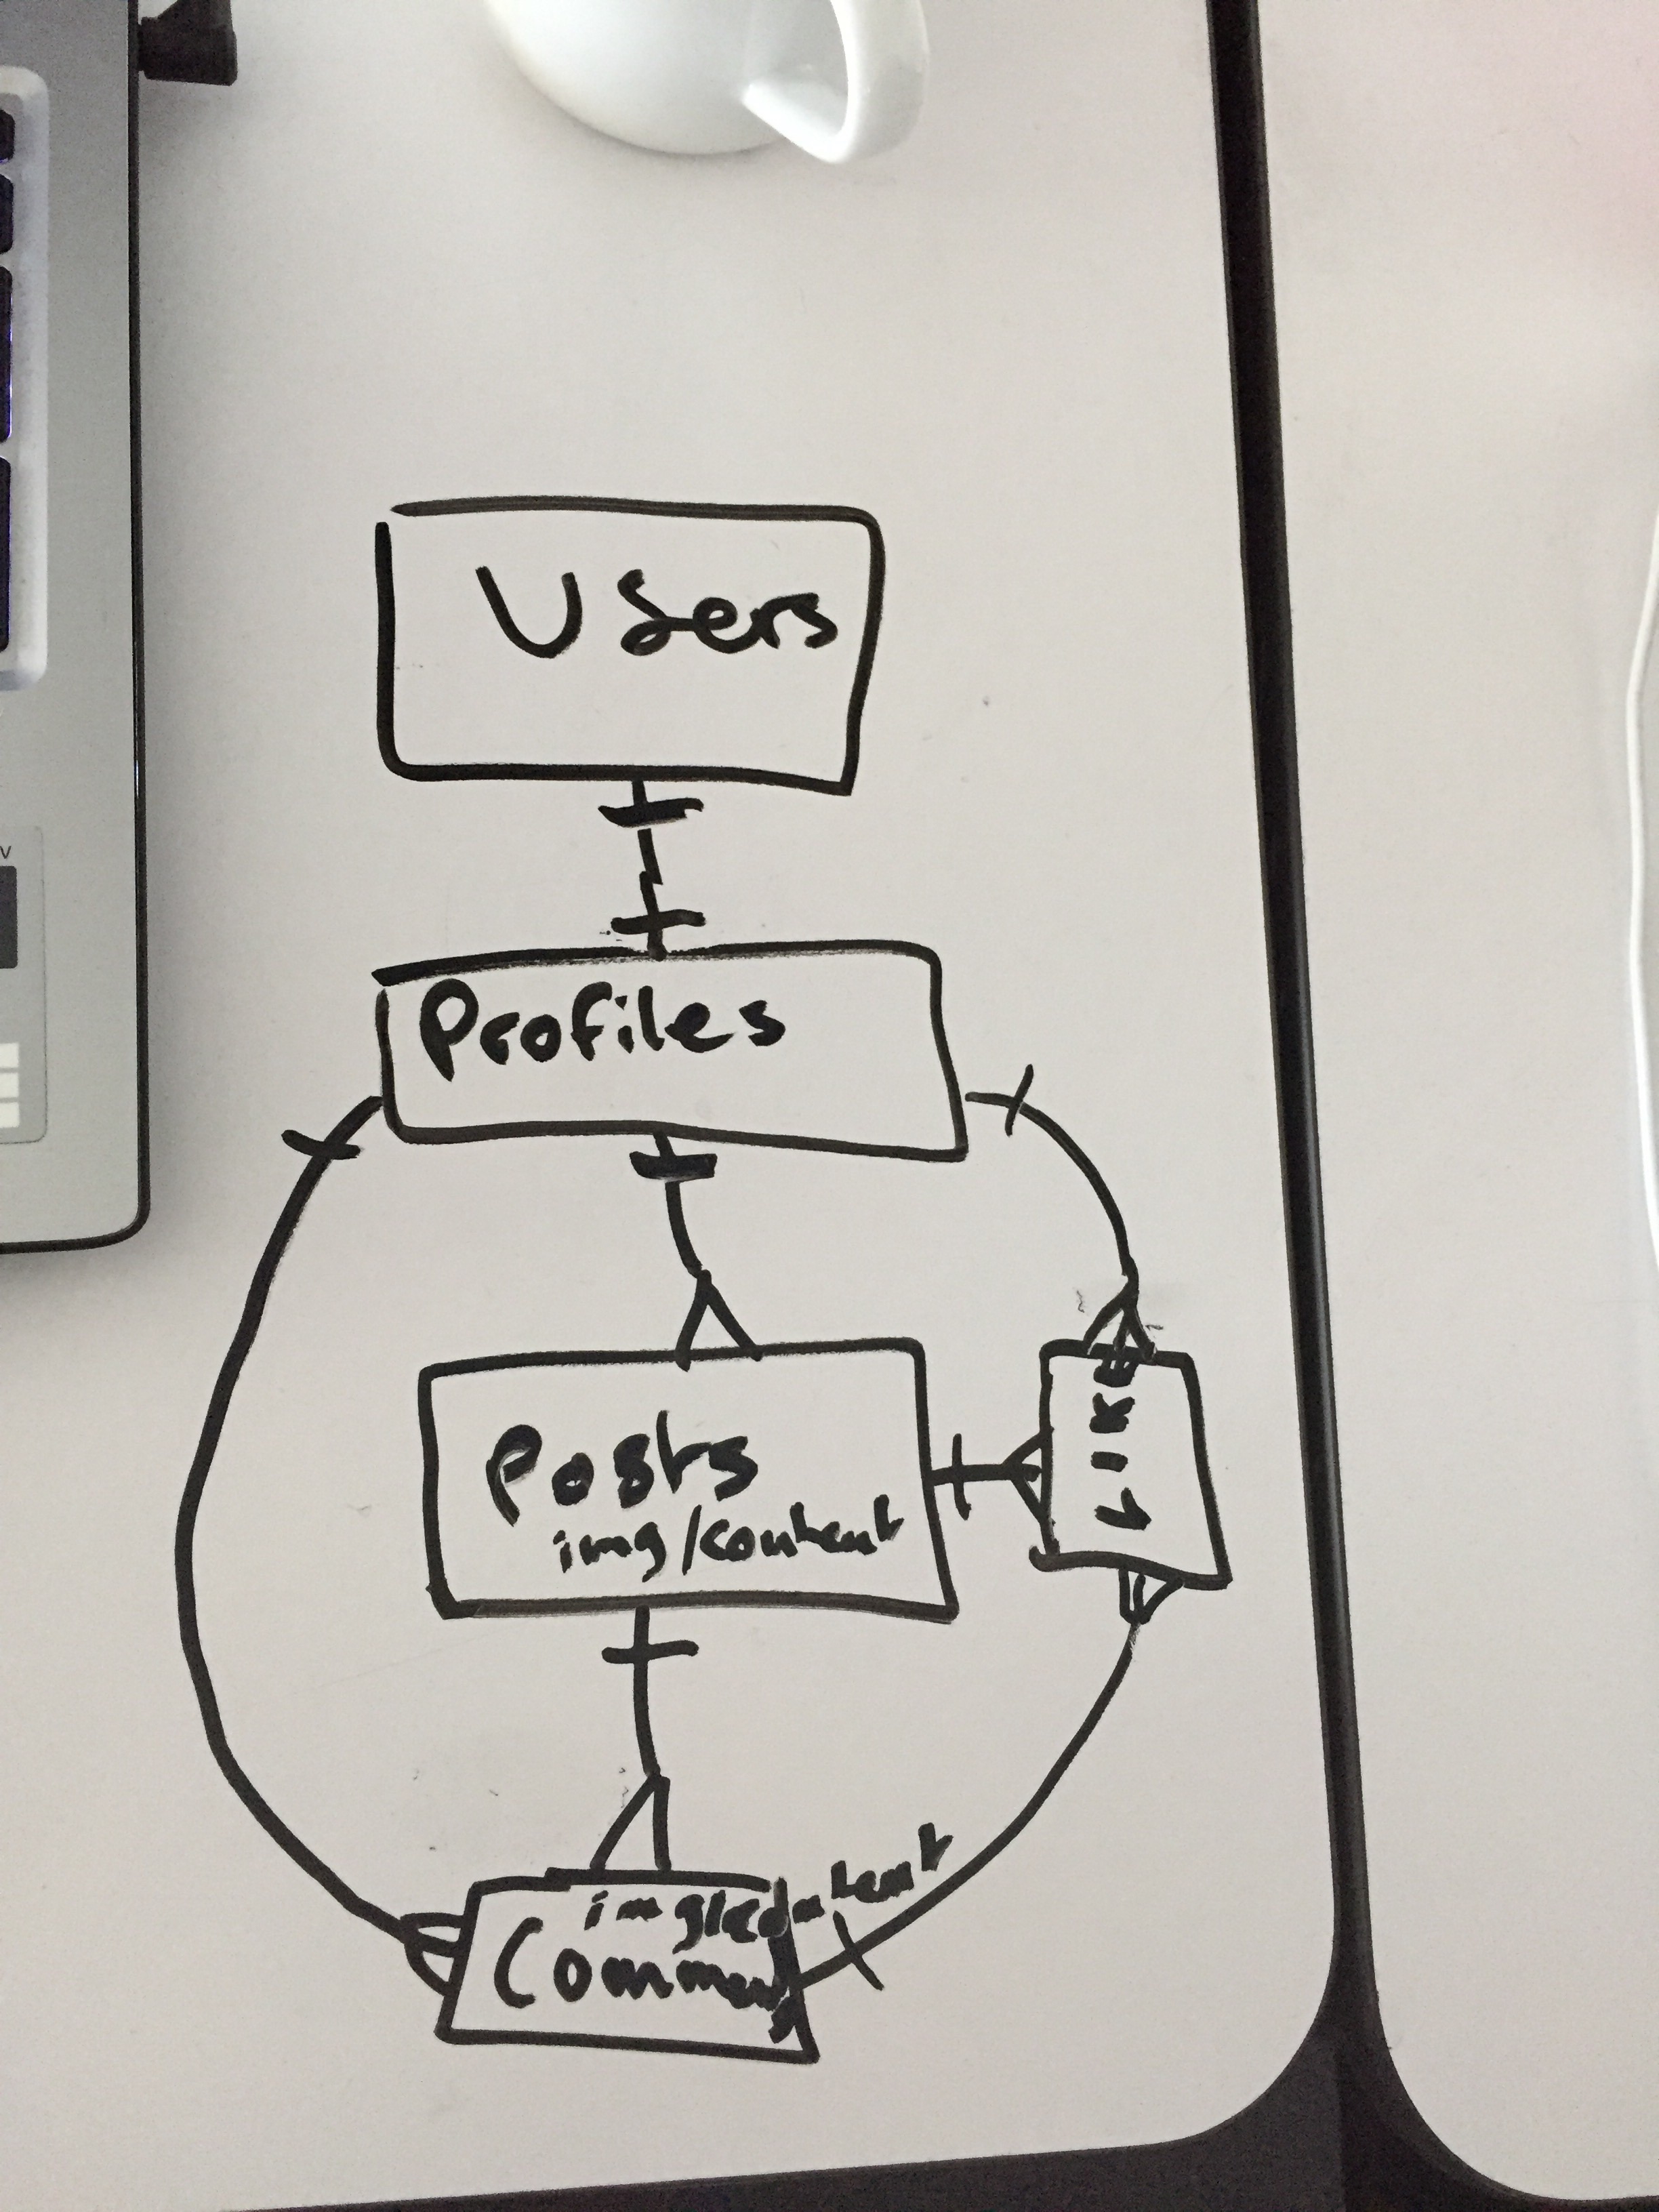 Users
Profiles
Posts
img/content
LIKE
img/content
Comments
V